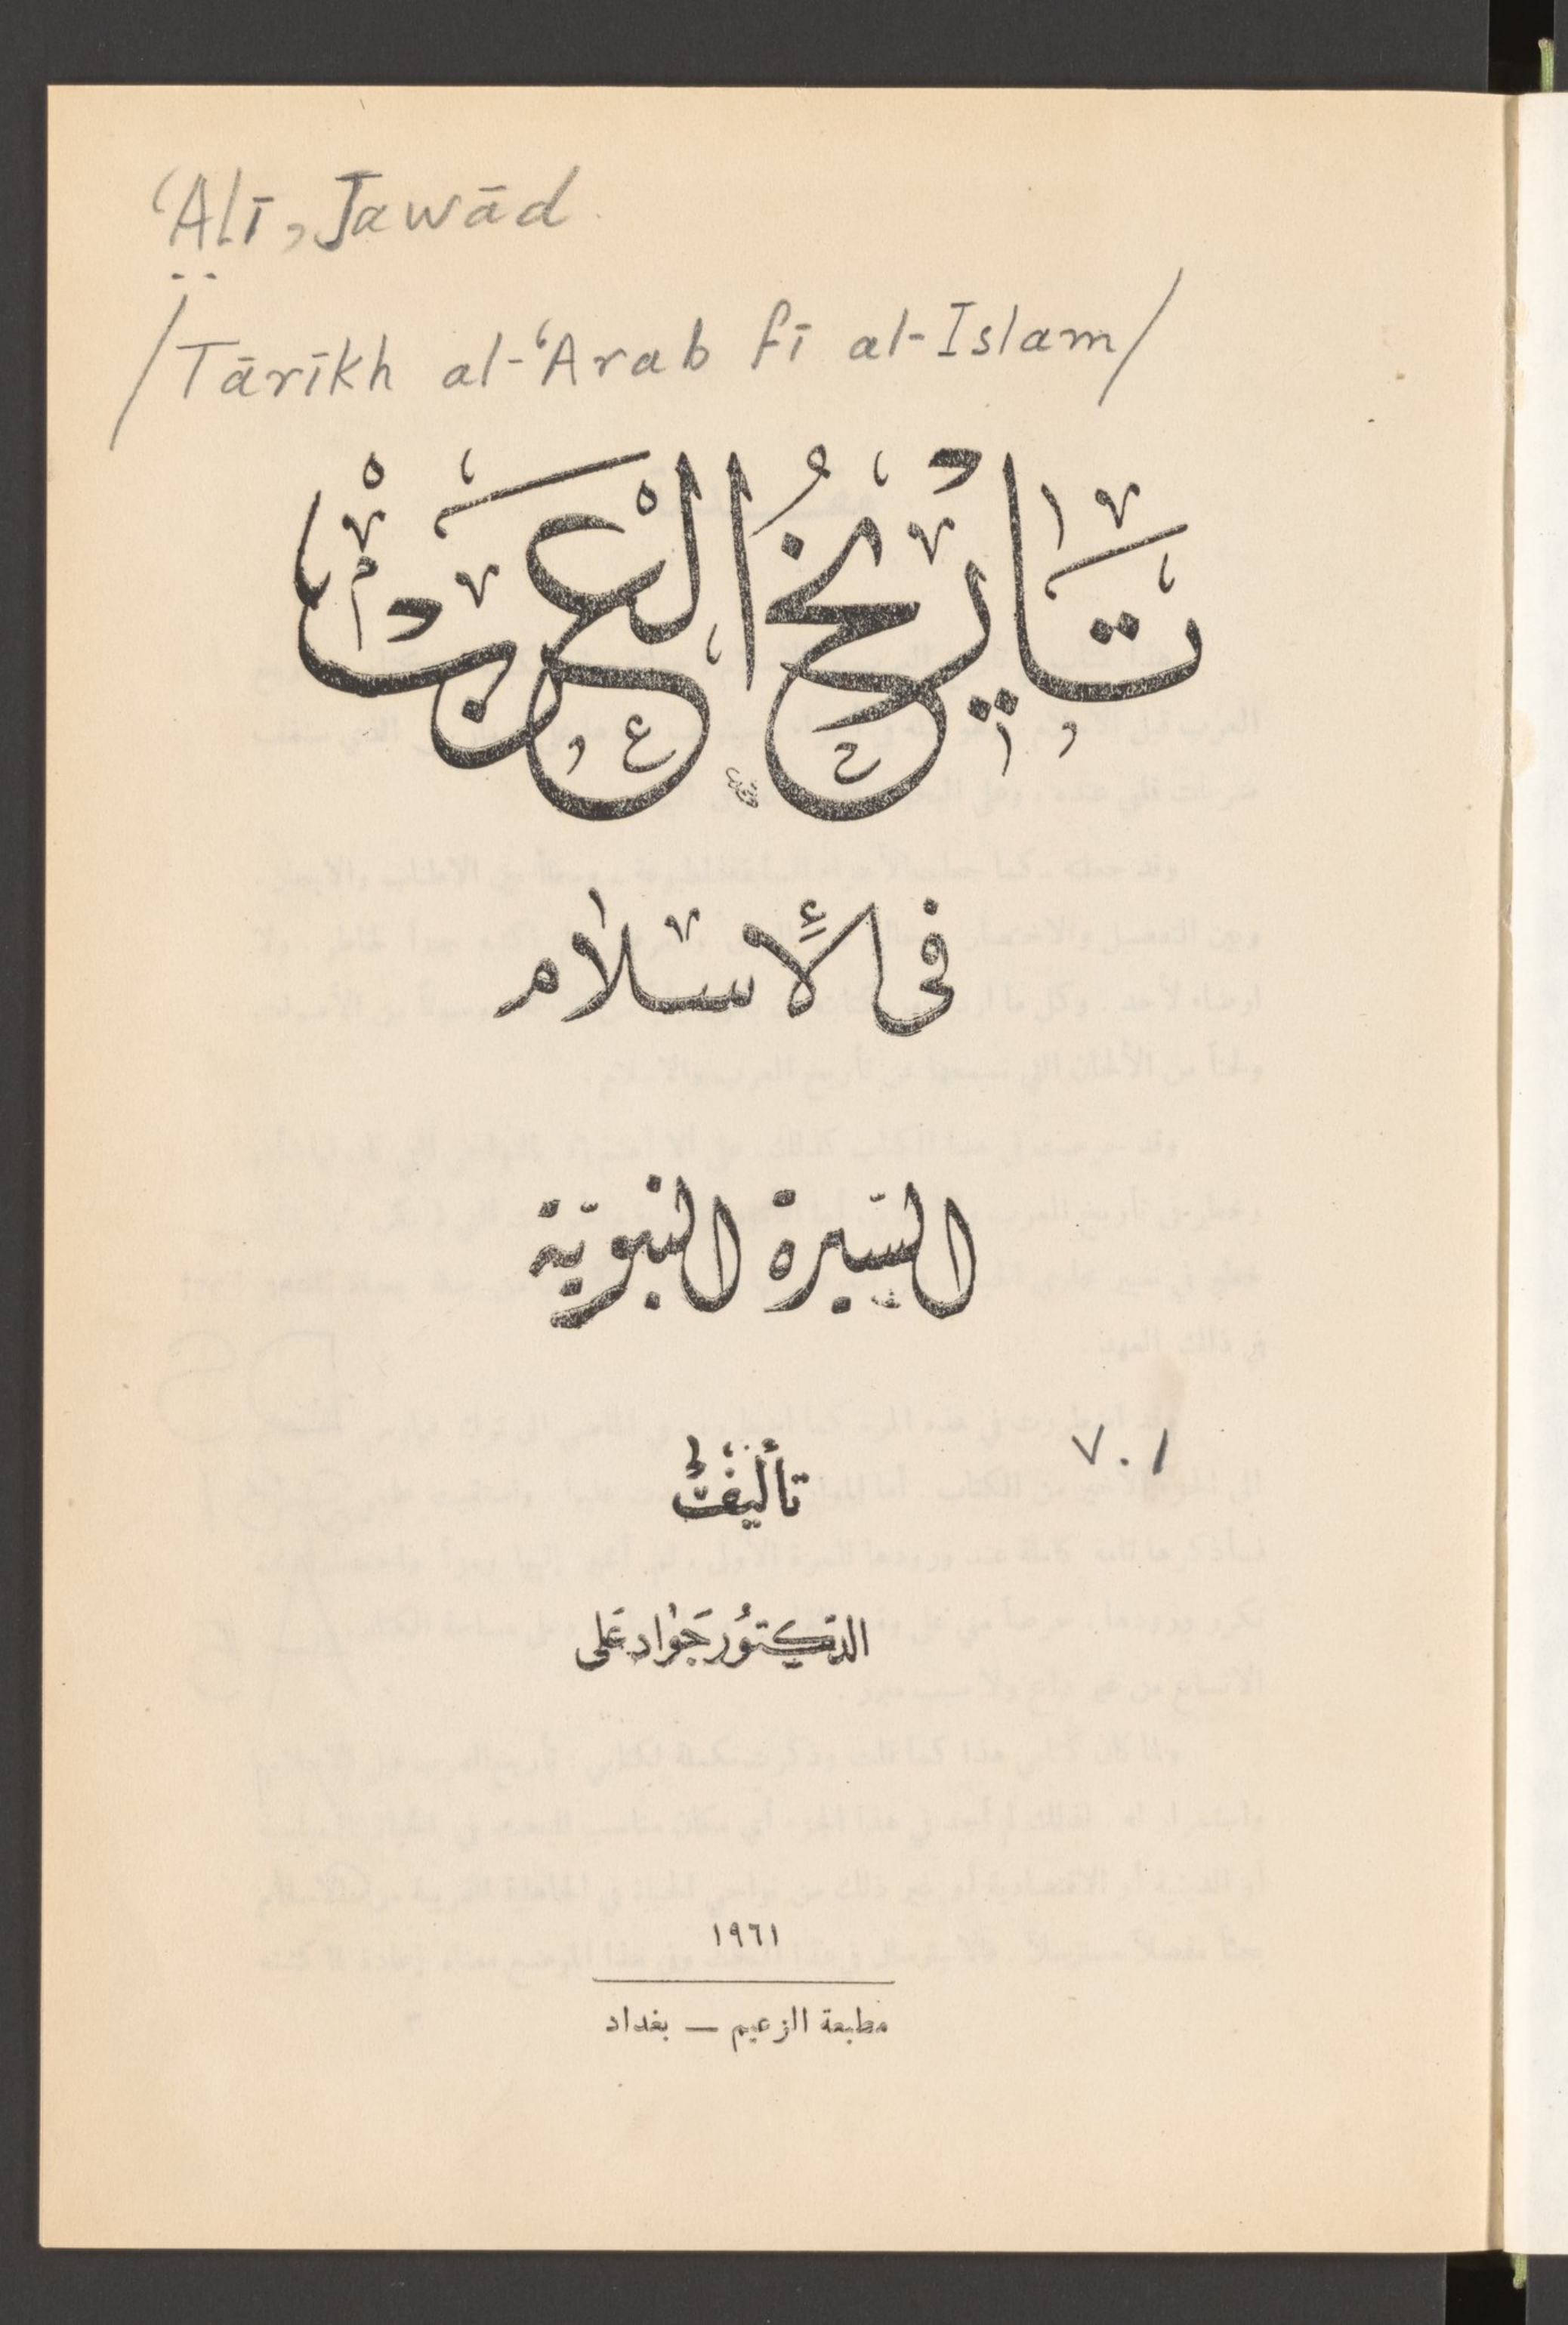 ‘Alī, Jawād
/Tārīkh al-‘Arab fī al-Islam/
تاريخ العرب
في الإسلام
السيرة النبوية
v.1
تأليف
الدكتور جواد علي
١٩٦١
مطبعة الزعيم — بغداد